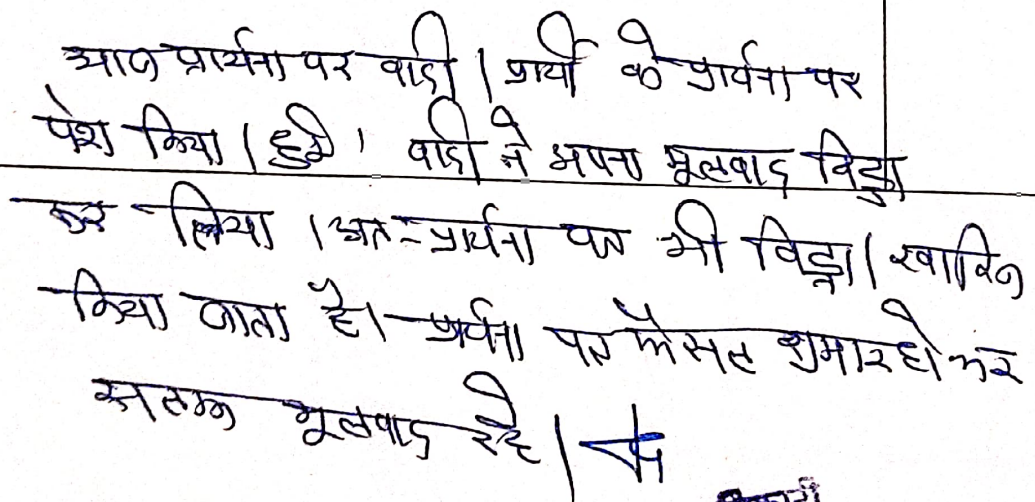 आज प्रार्थना पत्र वादी / प्रार्थी के प्रार्थना पत्र
पेश किया / हुई। वादी ने अपना मूलवाद विड्रा
कर लिया। अतः प्रार्थना पत्र भी विड्रा / खारिज
किया जाता है। प्रार्थना पत्र फैसल शुमार हो कर
संलग्न मूलवाद रहे।